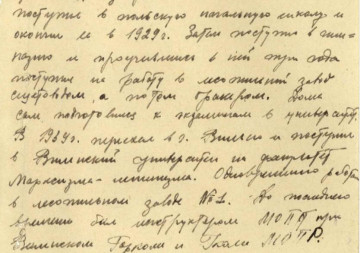 поступил в польскую начальную школу и
окончил ее в 1929 г. Затем поступил в гим-
назию и проучившись в ней три года
поступил на работу в лесопильный завод
счетоводом, а потом бракером. Дома
сам подготовился к экзаменам в университет.
В 1939 г. переехал в г. Вильно и поступил
в Виленский университет на факультет
Марксизма-ленинизма. Одновременно работал
в лесопильном заводе №1. До последнего
времени был инструктором МОПР при
Виленском Горкоме и МОПР.